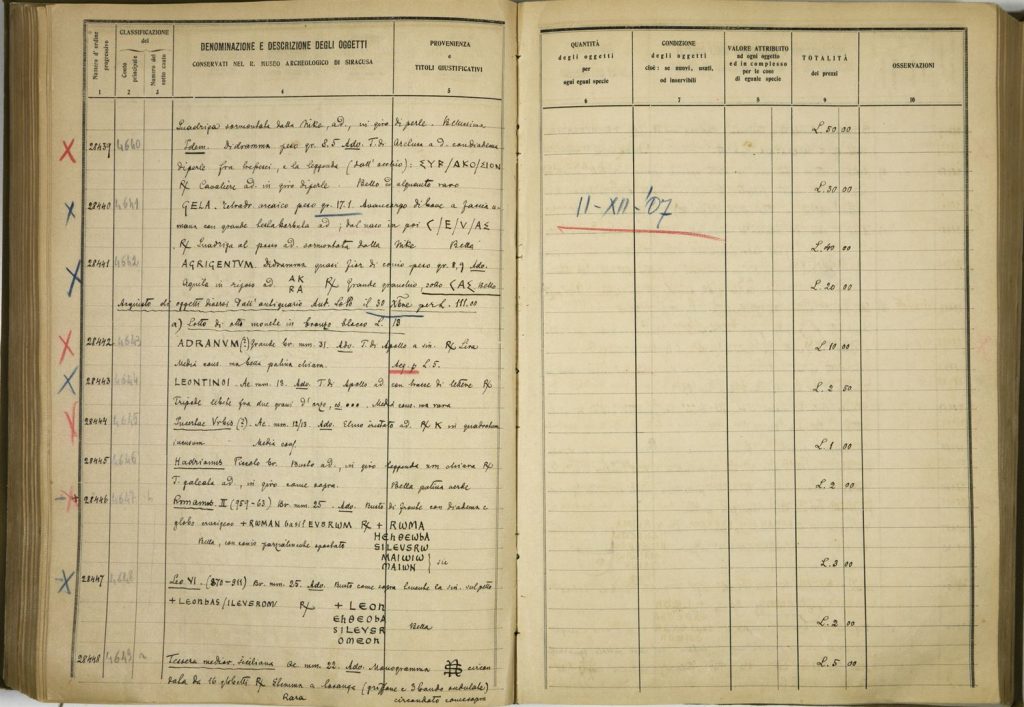 Numero d'ordine progressivo
CLASSIFICAZIONE
del
Conto principale
Numero del sotto conto
DENOMINAZIONE E DESCRIZIONE DEGLI OGGETTI
CONSERVATI NEL R. MUSEO ARCHEOLOGICO DI SIRACUSA
PROVENIENZA
e
TITOLI GIUSTIFICATIVI
1 2 3 4 5
Quadriga sormontata dalla Nike, ad., in giro di perle. Bellissima
28439 4640 Idem. Didramma peso gr. 8.5 Ado. T. di Aretusa a d. con diadema
di perle fra tre pesci, e la leggenda (dall'occhio): ΣYR/AKO/ΣION
R/ Cavaliere ad. in giro di perle. Bello ed alquanto raro
28440 4641 GELA. Tetradr. arcaico peso gr. 17.1. Avancorpo di bove a faccia u-
mana con grande barba ad.; dal naso in poi C/E/V/AΣ
R/ Quadriga al passo ad. sormontata dalla Nike Bella
28441 4642 AGRIGENTVM. Didramma quasi fior di conio peso gr. 8,9 Ado.
Aquila in riposo ad. AK R/ Grande granchio, sotto CAΣ Bello
RA
Acquisto di oggetti diversi dall'antiquario Ant. Lo Pò il 30 Xbre per L. 111.00
a) Lotto di otto monete in bronzo blocco L. 13
28442 4643 ADRANVM (?) Grande br. mm. 31. Ado. T. di Apollo a sin. R/ Lira
Media cons. ma bella patina chiara. Acq. p. L. 5.
28443 4644 LEONTINOI. Ae mm. 18. Ado. T. di Apollo ad. con tracce di lettere R/
Tripode lebete fra due grani d'orzo, es. ••• Media cons. ma rara
28444 4645 Incertae Vrbis (?). Ae. mm. 12/13. Ado. Elmo crestato ad. R/ K in quadratum
incusum. Media cons.
28445 4646 Hadrianus Piccolo br. Busto ad., in giro leggenda non chiara R/
T. galeata ad., in giro come sopra. Bella patina verde
28446 4647 b Romanus II (959-63) Br. mm. 25. Ado. Busto di fronte con diadema e
globo crucigero + RWMAN basil EVSRWM R/ + RWMA
HEhΘEWbA
Bella, con conio parzialmente spostato SILEVSRW
MAIWIW
MAIWN } sic
28447 4648 Leo VI. (870-911) Br. mm. 25. Ado. Busto come sopra
+ LEOnbAS/ILEVSROM R/ + LEOn
EhΘEObA
SILEVSR Bella
OMEOn
28448 4649 a Tessera mediev. siciliana Ae mm. 22. Ado. Monogramma circon
data da 16 globetti R/ Stemma a losanga (griffone e 3 bande ondulate)
Rara circondato come sopra
QUANTITÀ
degli oggetti
per
ogni eguai specie
CONDIZIONE
degli oggetti
cioè: se nuovi, usati,
od inservibili
VALORE ATTRIBUITO
ad ogni oggetto
ed in complesso
per le cose
di eguale specie
TOTALITÀ
dei prezzi
OSSERVAZIONI
6 7 8 9 10
L. 50 00
L. 30 00
11-XII-'07
L. 40 00
L. 20 00
L. 10 00
L. 2 50
L. 1 00
L. 2 00
L. 3 00
L. 2 00
L. 5 00